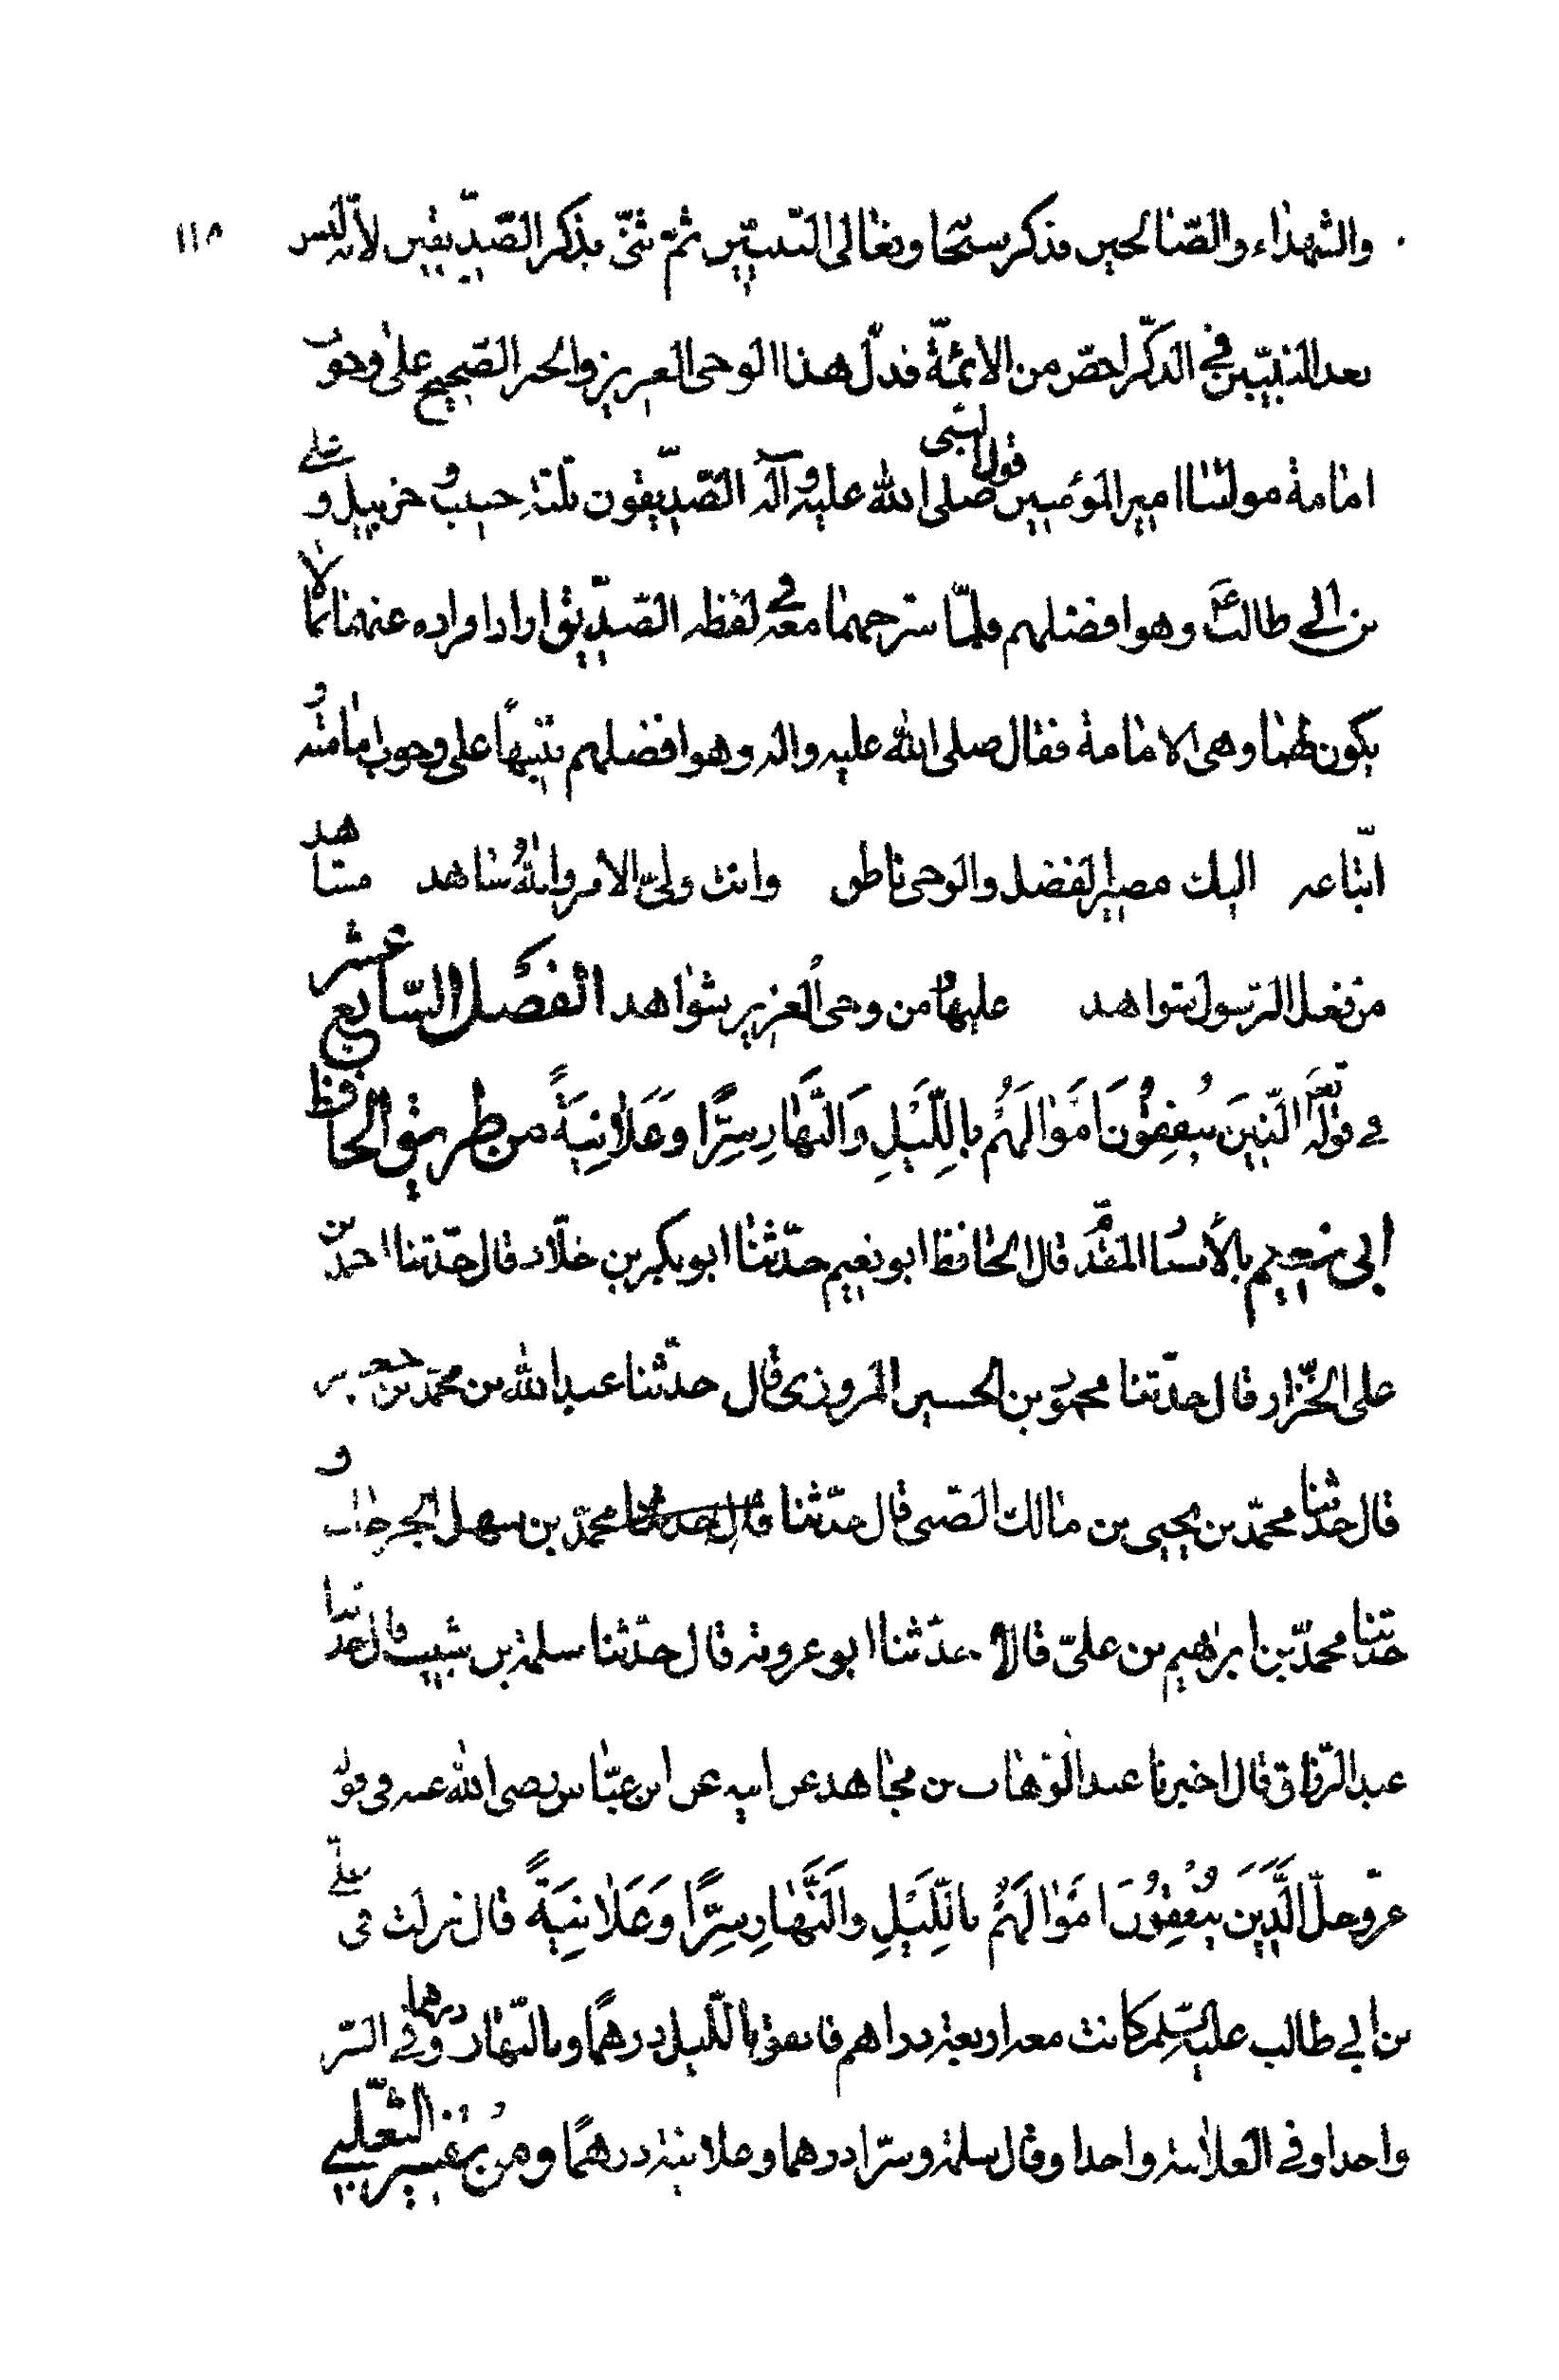 والشهداء والصالحين فذكر سبحا وتعالى النبيين ثم ثنى بذكر الصديقين لأنه ليس ١١٥
بعد النبيين في الذكر اخص من الائمة فدل هذا الوحى العزيز والخبر الصحيح على وجوب
امامة مولٰنا امير المؤمنين قول النبى صلى الله عليه وآله الصديقون ثلثة حبيب و خربيل و على
بن ابى طالب ع وهو افضلهم فلما ترجمهما معه في لفظه الصديق اراد افراده عنهما بما لا
يكون لهما وهى الامامة فقال صلى الله عليه واله وهو افضلهم تنبيهاً على وجوب امامته و
اتباعه اليك مصير الفضل والوحى ناطق وانت ولىّ الأمر والله شاهد مشاهد
من فعل الرسول شواهد عليها من وحى العزيز شواهد الفصل السابع عشر
في قوله تع الَّذينَ يُنفِقُونَ اَمْوٰالَهُم بِاللَّيْلِ وَالنَّهٰارِ سِرًّا وَعَلٰانِيَةً من طريق الحافظ
أبى نعيم بالأسنا المقدّم قال الحافظ ابو نعيم حدّثنا ابو بكر بن خلّاد قال حدّثنا احمد بن
على الخزّار قال حدّثنا محمود بن الحسين المروزى قال حدثنا عبد الله بن محمد بن جعفر
قال حدّثنا محمّد بن يحيى بن مالك الضبى قال حدّثنا قال حدثنا محمّد بن سهل الجرجانى و
حدّثنا محمّد بن ابرٰهيم بن علىّ قالا حدّثنا ابو عروبة قال حدّثنا سلمة بن شبيب قال حدّثنا
عبد الرّزاق قال اخبرنا عبد الوهاب بن مجاهد عن ابيه عن ابن عبّاس رضى الله عنه فى قوله
عزّ وجلّ الَّذِينَ يُنْفِقُونَ اَمْوٰالَهُمْ بِاللَّيْلِ والنَّهٰارِ سِرًّا وَعَلٰانِيَةً قال نزلت فى علىّ
بن ابي طالب عليه السّلم كانت معه اربعة دراهم فانفق بالليل درهمًا وبالنهار درهما وفي السّر
واحدا وفي العلانية واحدا وقال سلمة وسرّا درهما وعلانية درهمًا ومن تفسير الثّعلبي